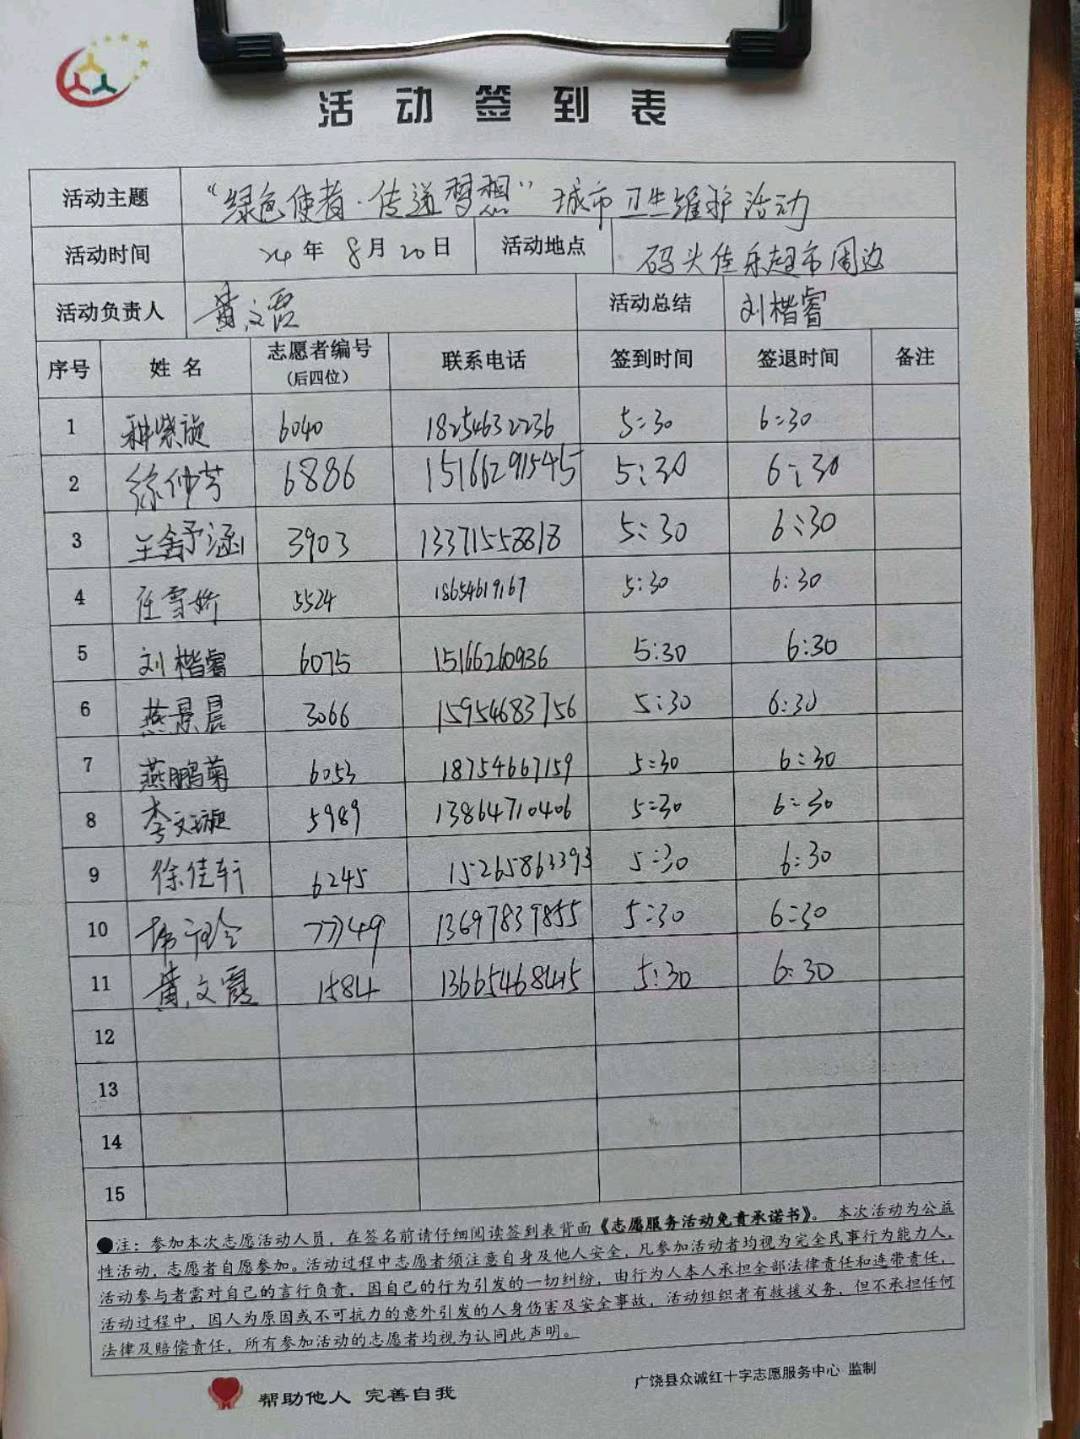 活动签到表
活动主题 “绿色使者·传递梦想”城市卫生维护活动
活动时间 24年8月20日 活动地点 码头佳乐超市周边
活动负责人 黄文霞 活动总结 刘楷睿
序号 姓名 志愿者编号(后四位) 联系电话 签到时间 签退时间 备注
1 种紫旋 6040 18254632236 5:30 6:30
2 徐仲芳 6886 15166291545 5:30 6:30
3 王舒涵 3903 13371558818 5:30 6:30
4 任雪娇 5524 18654619167 5:30 6:30
5 刘楷睿 6075 15166260936 5:30 6:30
6 燕景晨 3066 15954683756 5:30 6:30
7 燕鹏菊 6053 18754667159 5:30 6:30
8 李文璇 5989 13864710406 5:30 6:30
9 徐佳轩 6245 15265863393 5:30 6:30
10 7749 13697839855 5:30 6:30
11 黄文霞 1584 13665468445 5:30 6:30
12
13
14
15
●注：参加本次志愿活动人员，在签名前请仔细阅读签到表背面《志愿服务活动免责承诺书》。本次活动为公益
性活动，志愿者自愿参加。活动过程中志愿者须注意自身及他人安全，凡参加活动者均视为完全民事行为能力人，
活动参与者需对自己的言行负责，因自己的行为引发的一切纠纷，由行为人本人承担全部法律责任和连带责任，
活动过程中，因人为原因或不可抗力的意外引发的人身伤害及安全事故，活动组织者有救援义务，但不承担任何
法律及赔偿责任，所有参加活动的志愿者均视为认同此声明。
帮助他人 完善自我 广饶县众诚红十字志愿服务中心 监制